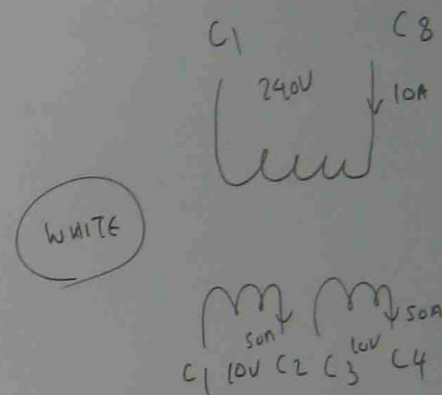 C1 C8
240V 10A
WHITE
50A 50A
C1 10V C2 C3 10V C4